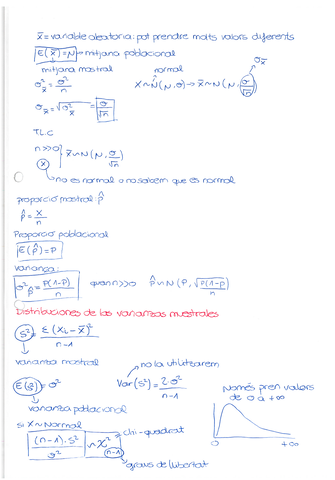 x̄ = variable aleatoria: pot prendre molts valors diferents
E(x̄) = N → mitjana poblacional
mitjana mostral normal
σ²x̄ = σ²/n X ~ N(N, σ) → x̄ ~ N(N, σ/√n) → σx̄
σx̄ = √σ²x̄ = σ/√n
T.L.C
n>>0 } x̄ ~ N(N, σ/√n)
X
↳ no es normal o no sabem que es normal
proporció mostral: p̂
p̂ = X/n
Proporció poblacional
E(p̂) = P
variança:
σ²p̂ = P(1-P)/n quan n>>0 p̂ ~ N(P, √P(1-P)/n)
Distribuciones de las varianzas muestrales
S² = Σ(Xi - x̄)²/n-1
variança mostral → no la utilitzarem
E(S²) = σ² Var(S²) = 2σ²/n-1
Només pren valors
de 0 a +∞
variança poblacional
si X ~ Normal
(n-1)·S²/σ² ~ χ²(n-1) → chi-quadrat
0 +∞
graus de llibertat